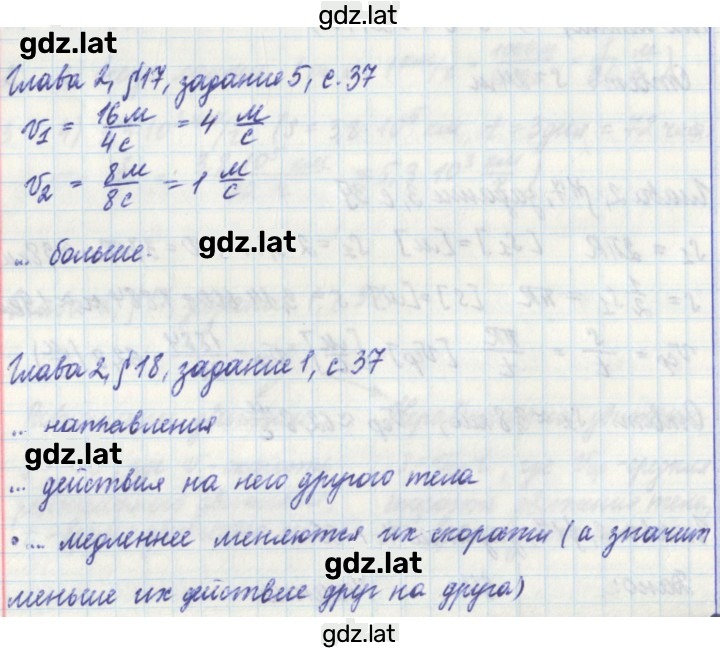 gdz.lat
gdz.lat
Глава 2, §17, задание 5, с. 37
v₁ = 16м/4с = 4 м/с
v₂ = 8м/8с = 1 м/с
... больше.
gdz.lat
Глава 2, §18, задание 1, с. 37
... направления
gdz.lat
... действия на него другого тела
• ... медленнее меняются их скорости (а значит
gdz.lat
меньше их действие друг на друга)
gdz.lat